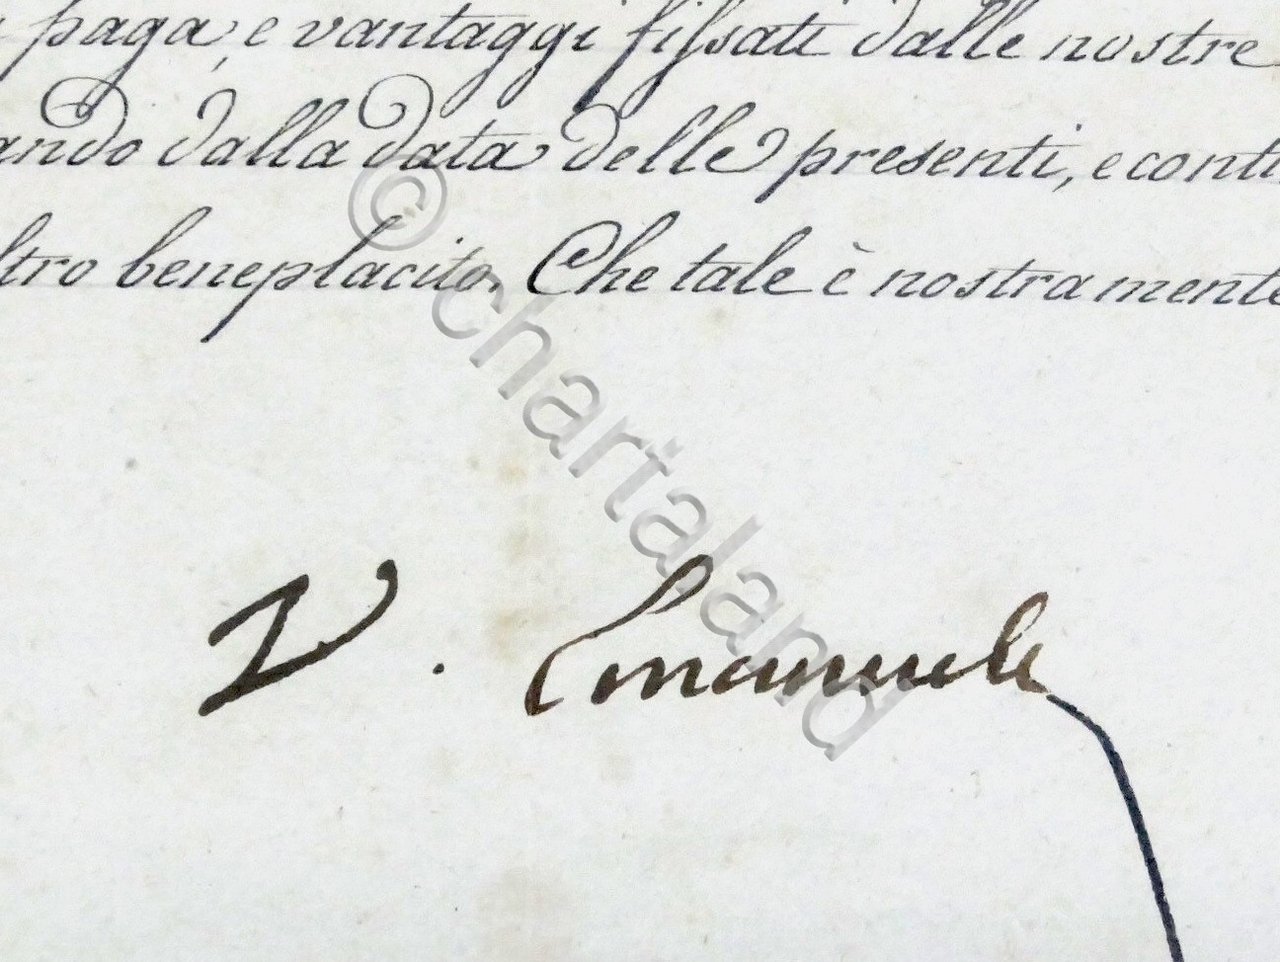 paga, e vantaggi fissati dalle nostre
ando dalla data delle presenti, e conti
ltro beneplacito. Che tale è nostra mente
V. Emanuele
© chartaland